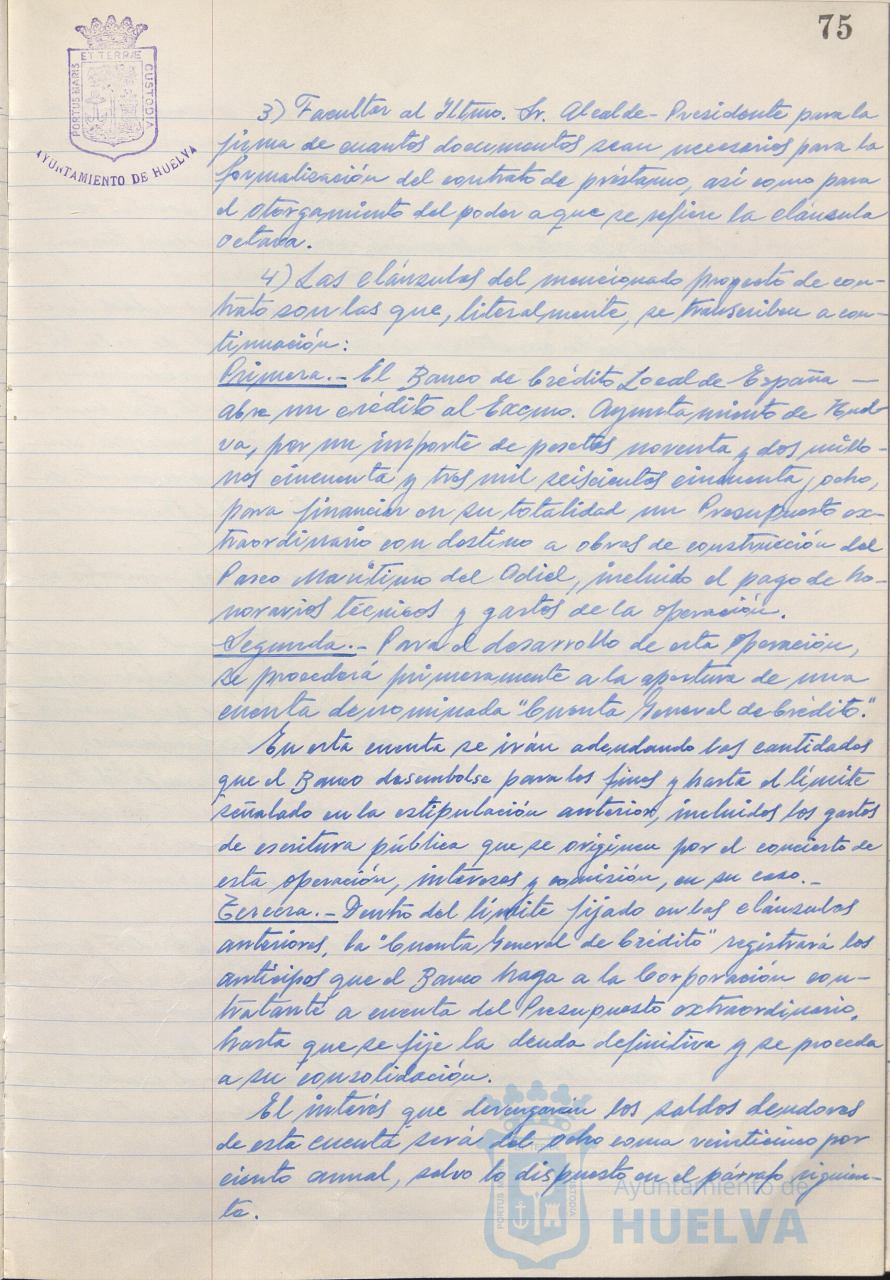 75
PORTUS MARIS ET TERRÆ CUSTODIA
AYUNTAMIENTO DE HUELVA
3) Facultar al Iltmo. Sr. Alcalde-Presidente para la
firma de cuantos documentos sean necesarios para la
formalización del contrato de préstamo, así como para
el otorgamiento del poder a que se refiere la cláusula
octava.
4) Las cláusulas del mencionado proyecto de con-
trato son las que, literalmente, se transcriben a con-
tinuación:
Primera.- El Banco de Crédito Local de España —
abre un crédito al Excmo. Ayuntamiento de Huel-
va, por un importe de pesetas noventa y dos millo-
nes cincuenta y tres mil seiscientos cincuenta y ocho,
para financiar en su totalidad un Presupuesto ex-
traordinario con destino a obras de construcción del
Paseo Marítimo del Odiel, incluido el pago de ho-
norarios técnicos y gastos de la operación.
Segunda.- Para el desarrollo de esta operación,
se procederá primeramente a la apertura de una
cuenta denominada "Cuenta General de Crédito."
En esta cuenta se irán adeudando las cantidades
que el Banco desembolse para los fines y hasta el límite
señalado en la estipulación anterior, incluidos los gastos
de escritura pública que se originen por el concierto de
esta operación, intereses y comisión, en su caso.-
Tercera.- Dentro del límite fijado en las cláusulas
anteriores, la "Cuenta General de Crédito" registrará los
anticipos que el Banco haga a la Corporación con-
tratante a cuenta del Presupuesto extraordinario,
hasta que se fije la deuda definitiva y se proceda
a su consolidación.
El interés que devengarán los saldos deudores
de esta cuenta será del ocho coma veinticinco por
ciento anual, salvo lo dispuesto en el párrafo siguien-
te.
Ayuntamiento de
HUELVA